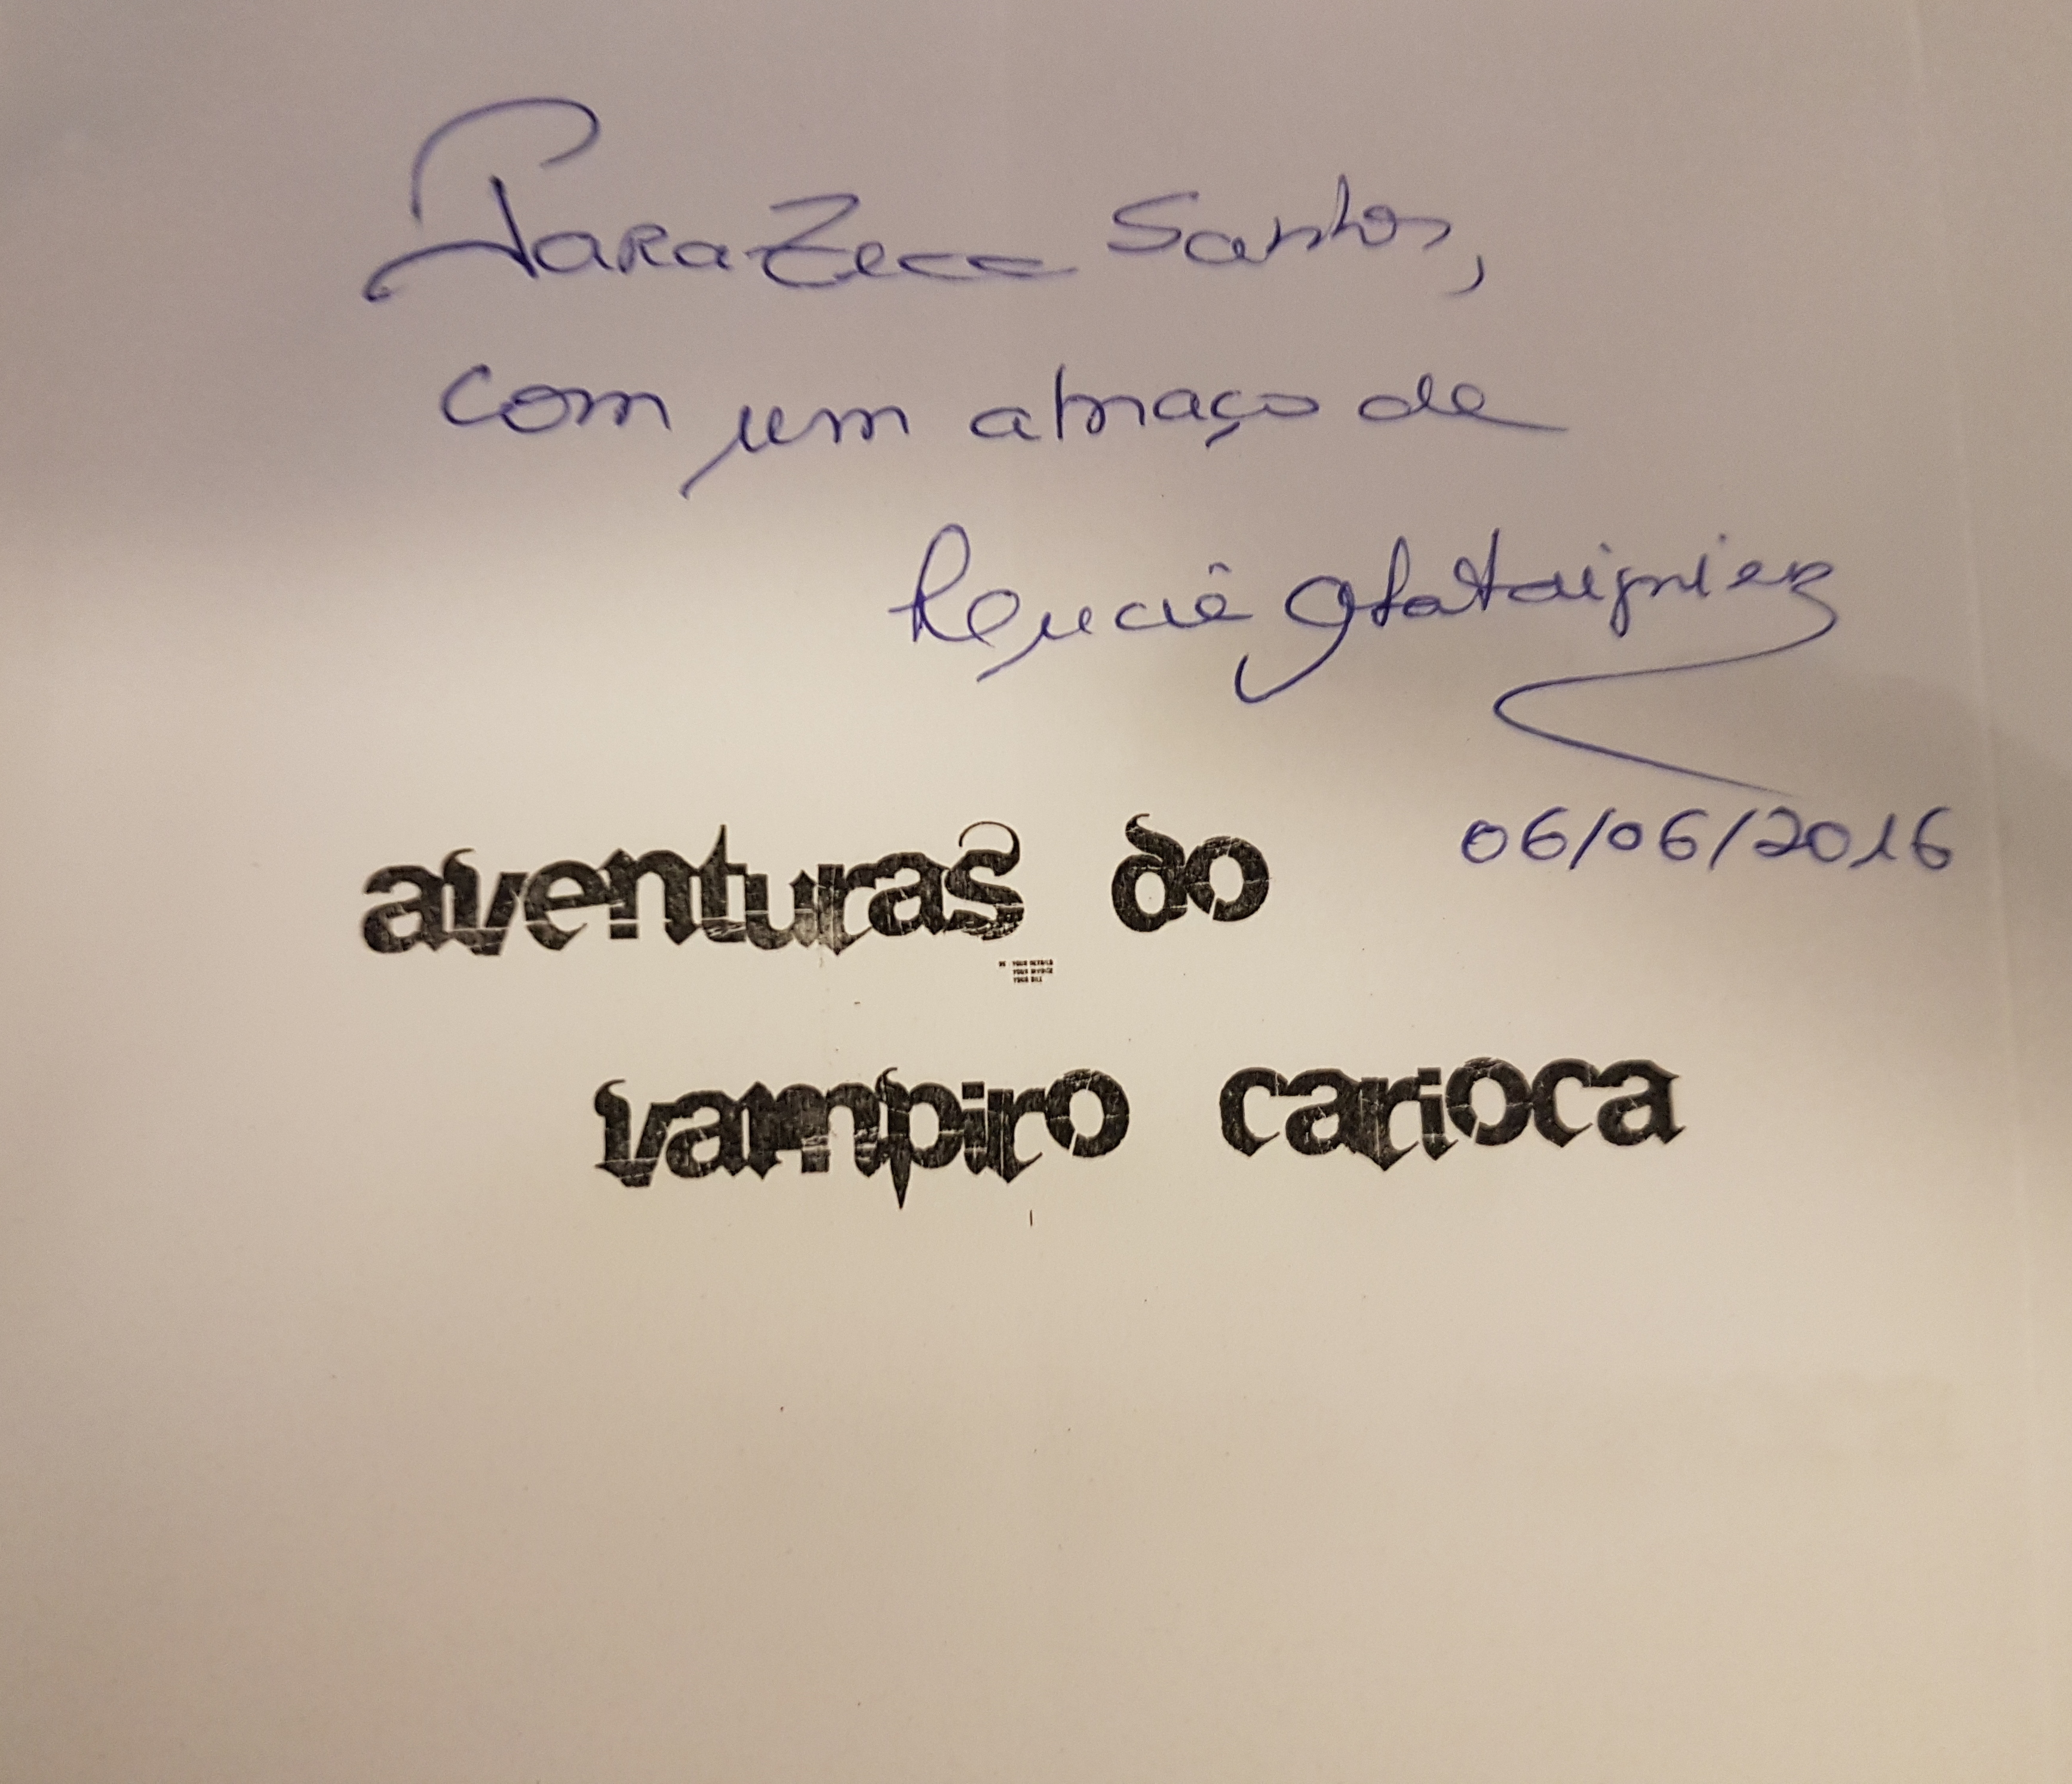 Para Zeca Santos,
com um abraço de
06/06/2016
aventuras do
vampiro carioca